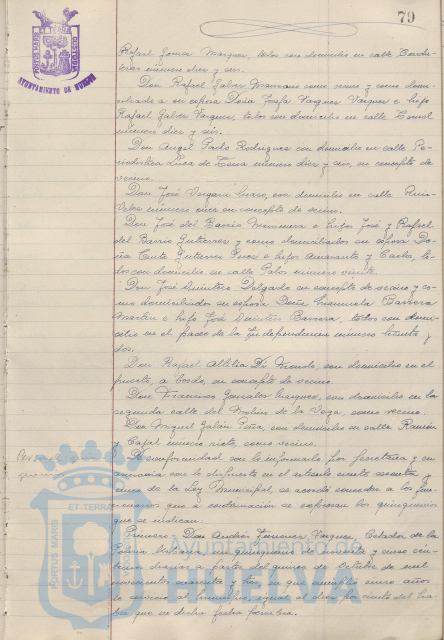 79
PORTUS MARIS ET TERRAE CUSTODIA
AYUNTAMIENTO DE HUELVA
Rafael Márquez, todos con domicilio en calle
número diez y seis.
Don Rafael como vecino y como domi-
ciliados a su esposa Doña Josefa Vazquez Vazquez e hijo
Rafael Vazquez, todos con domicilio en calle
número diez y seis.
Don Angel Pardo Rodriguez con domicilio en calle Pe-
riodista Luca de Tena número diez y seis, en concepto de
vecino.
Don José Vergara con domicilio en calle Ruiz
Velez número once en concepto de vecino.
Don José del Barrio e hijos José y Rafael
del Barrio Gutierrez y como domiciliados su esposa Do-
ña Gutierrez e hijos Amaranto y Carlos, to-
dos con domicilio en calle Palos número veinte.
Don José Quintero Delgado en concepto de vecino y co-
mo domiciliados su esposa Doña Manuela Barrera
Martin e hijo José Quintero Barrera, todos con domi-
cilio en el paseo de la Independencia número treinta y
dos.
Don Rafael Di con domicilio en el
puerto, a bordo, en concepto de vecino.
Don Francisco Gonzalez con domicilio en la
segunda calle del Molino de la Vega, como vecino.
Don Miguel Galán Peña, con domicilio en calle Ramón
y Cajal número siete, como vecino.
De conformidad con lo informado por Secretaría y en
armonía con lo dispuesto en el artículo ciento sesenta y
cinco de la Ley Municipal, se acordó conceder a los fun-
cionarios que a continuación se expresan los quinquenios
que se indican:
Primero: Don Andrés Jimenez Vazquez, Celador de la
Policía Urbana, un quinquenio de noventa y cinco cén-
timos diarios a partir del quince de Octubre de mil
novecientos cuarenta y tres en que cumplió cinco años
de servicio al Municipio, equal al diez por ciento del ha-
ber que en dicha fecha percibía.
PORTUS MARIS ET TERRAE
Ayuntamiento de
HUELVA